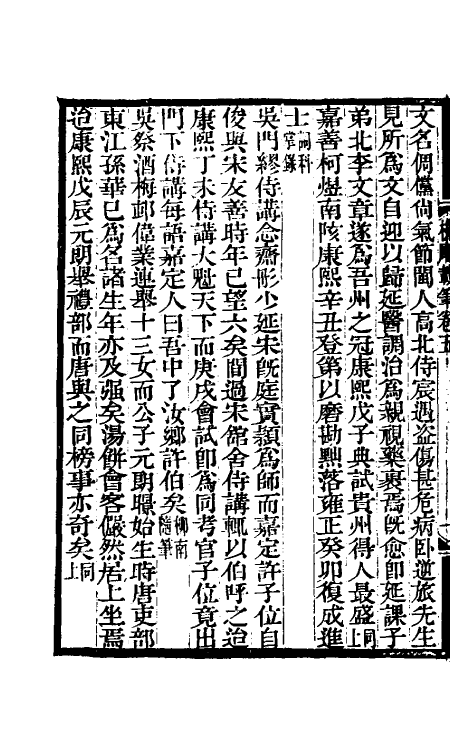 文名倜儻尙氣節閩人高北侍宸遇盜傷甚危病臥道旅先生
見所爲文自迎以歸延醫調治爲親視藥裹焉旣愈卽延課子
弟北李文章遂爲吾州之冠康熙戊子典試貴州得人最盛同上
嘉善柯煜南陔康熙辛丑登第以磨勘黜落雍正癸卯復成進
士詞科掌錄
吳門繆侍講念齋彤少延宋旣庭實穎爲師而嘉定許子位自
俊與宋友善時年已望六矣間過宋館舍侍講輒以伯呼之迨
康熙丁未侍講大魁天下而庚戌會試卽爲同考官子位竟出
門下侍講每語嘉定人曰吾中了汝鄉許伯矣柳南隨筆
吳祭酒梅邨偉業連舉十三女而公子元朗暻始生時唐吏部
東江孫華已爲名諸生年亦及强矣湯餅會客儼然居上坐焉
迨康熙戊辰元朗舉禮部而唐與之同榜事亦奇矣同上